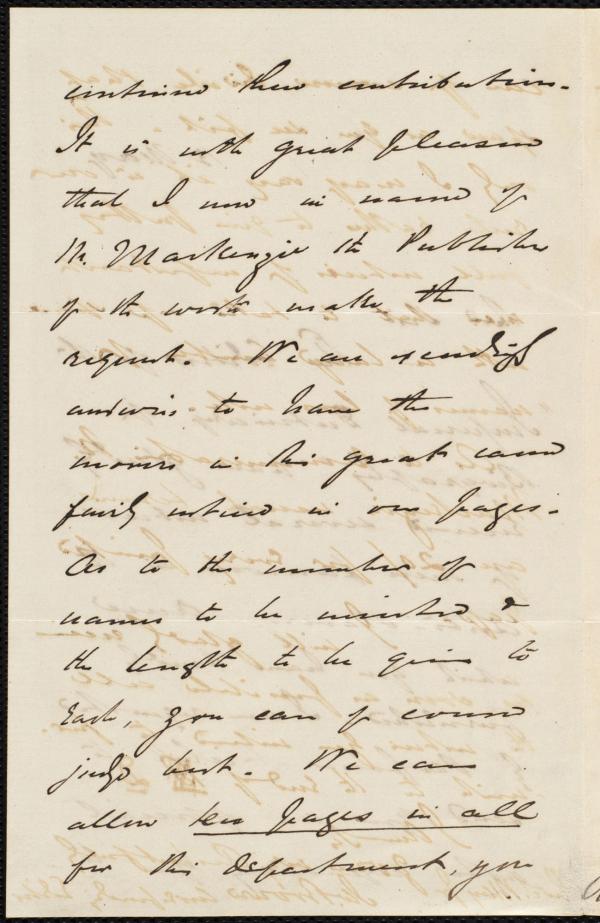 continue their contribution.
It is with great pleasure
that I now in name of
Mr. Mackenzie the Publisher
of the work make the
request. We are exceedingly
anxious to have the
movers in this great cause
fairly noticed in our pages.
As to the number of
names to be inserted &
the length to be given to
each, you can of course
judge best. We can
allow ten pages in all
for this department, you